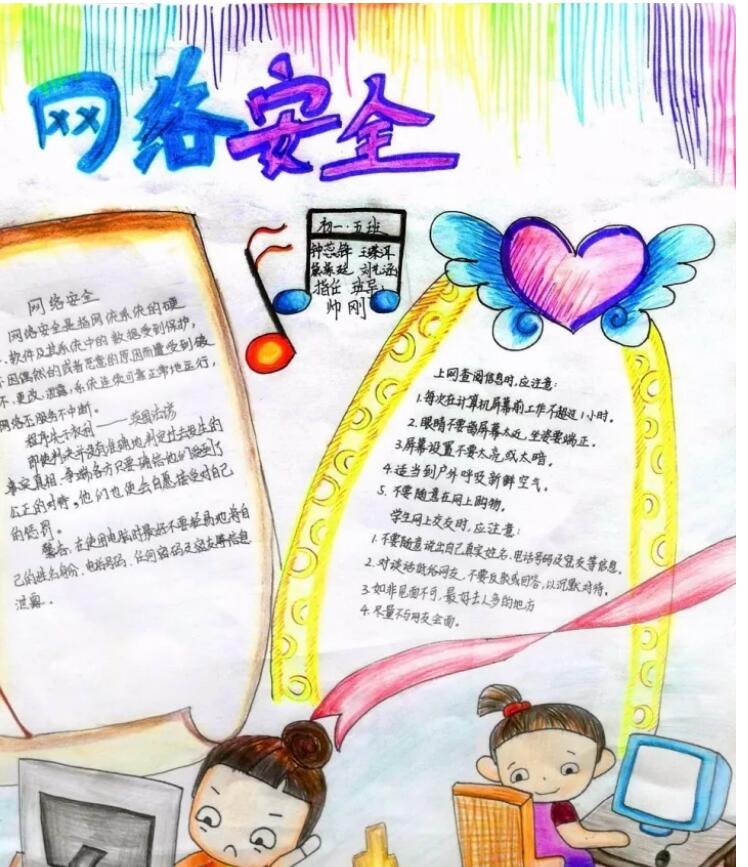 网络安全
初一·五班
指任 班导：
帅刚
网络安全
网络安全是指网络系统的硬
软件及其系统中的数据受到保护，
不因偶然的或者恶意的原因而遭受到破
不、更改、泄露，系统连续可靠正常地运行，
网络服务不中断。
程序先于权利——英国法谚
公正的对待，他们也便会自愿接受对自己
的惩罚。
警示：在使用电脑时最好不要轻易地将自
己的姓名身份、电话号码、任何密码及室友等信息
泄露。
上网查阅信息时，应注意：
1.每次在计算机屏幕前工作不超过1小时。
2.眼睛不要离屏幕太近，坐姿要端正。
3.屏幕设置不要太亮或太暗。
4.适当到户外呼吸新鲜空气。
5.不要随意在网上购物。
学生网上交友时，应注意：
1.不要随意说出自己真实姓名、电话号码及室友等信息。
2.对谈话低俗网友，不要反驳或回答，以沉默对待。
3.如非见面不可，最好去人多的地方
4.尽量不与网友会面。